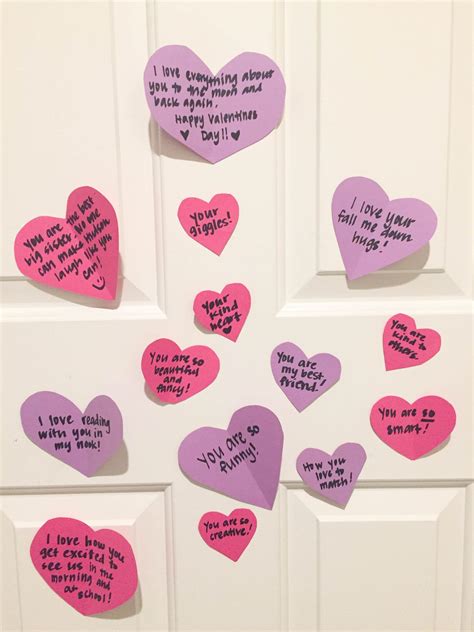 I love everything about
you to the moon and
back again.
Happy Valentines
♥ Day!! ♥
You are the best
big sister. No one
can make Hudson
laugh like you
can!
Your
giggles!
I love your
fall me down
hugs!
Your
kind
heart
♥
You are
kind to
others
You are so
beautiful
and
fancy!
You are
my best
friend!
You are so
smart!
I love reading
with you in
my nook!
You are so
funny!
How you
love to
match!
You are so
creative!
I love how you
get excited to
see us in the
morning and
at
school!